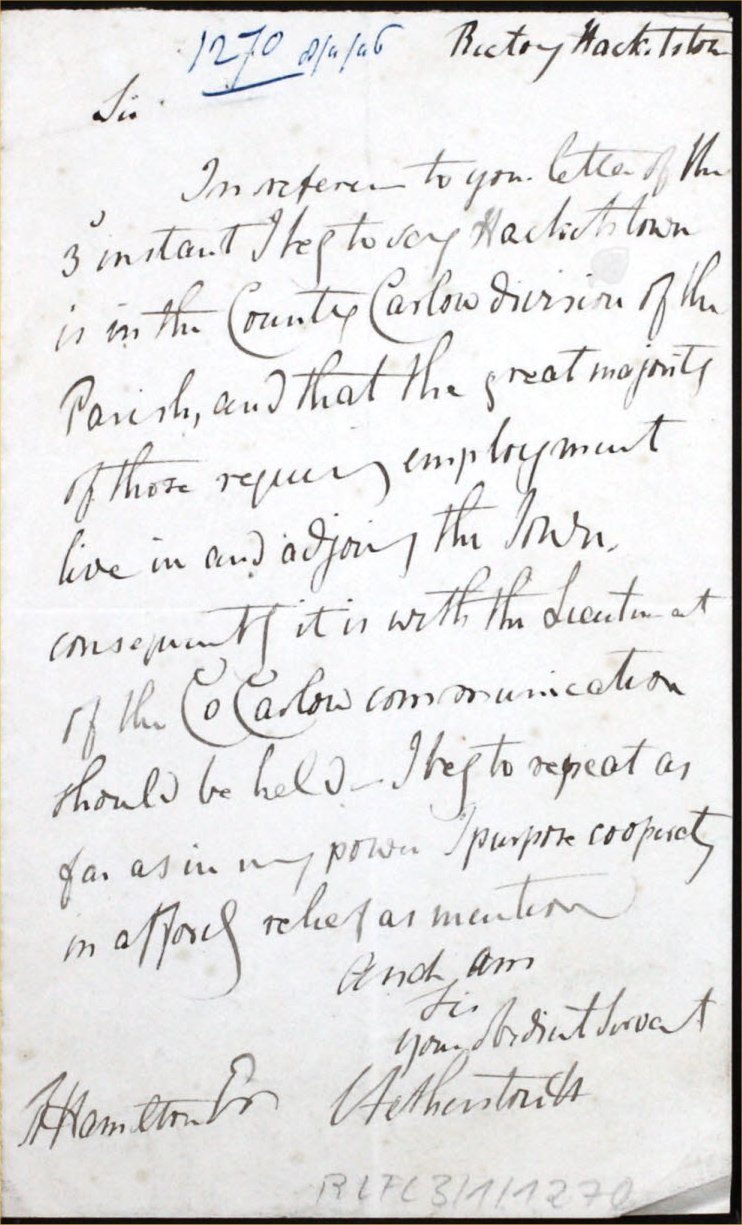 1270 8/4/46 Rectory Hacketstown
Sir
In referen to your letter of the
3d instant I beg to say Hacketstown
is in the County Carlow division of the
Parish, and that the great majority
of those requiring employment
live in and adjoing the Town,
consequently it is with the Lieutenant
of the Co Carlow communication
should be held - I beg to repeat as
far as in my power I purpose cooperatg
in affordg relief as mention
And am
Sir
your obedient Servant
Hamilton Esr
RLFC3/1/1270